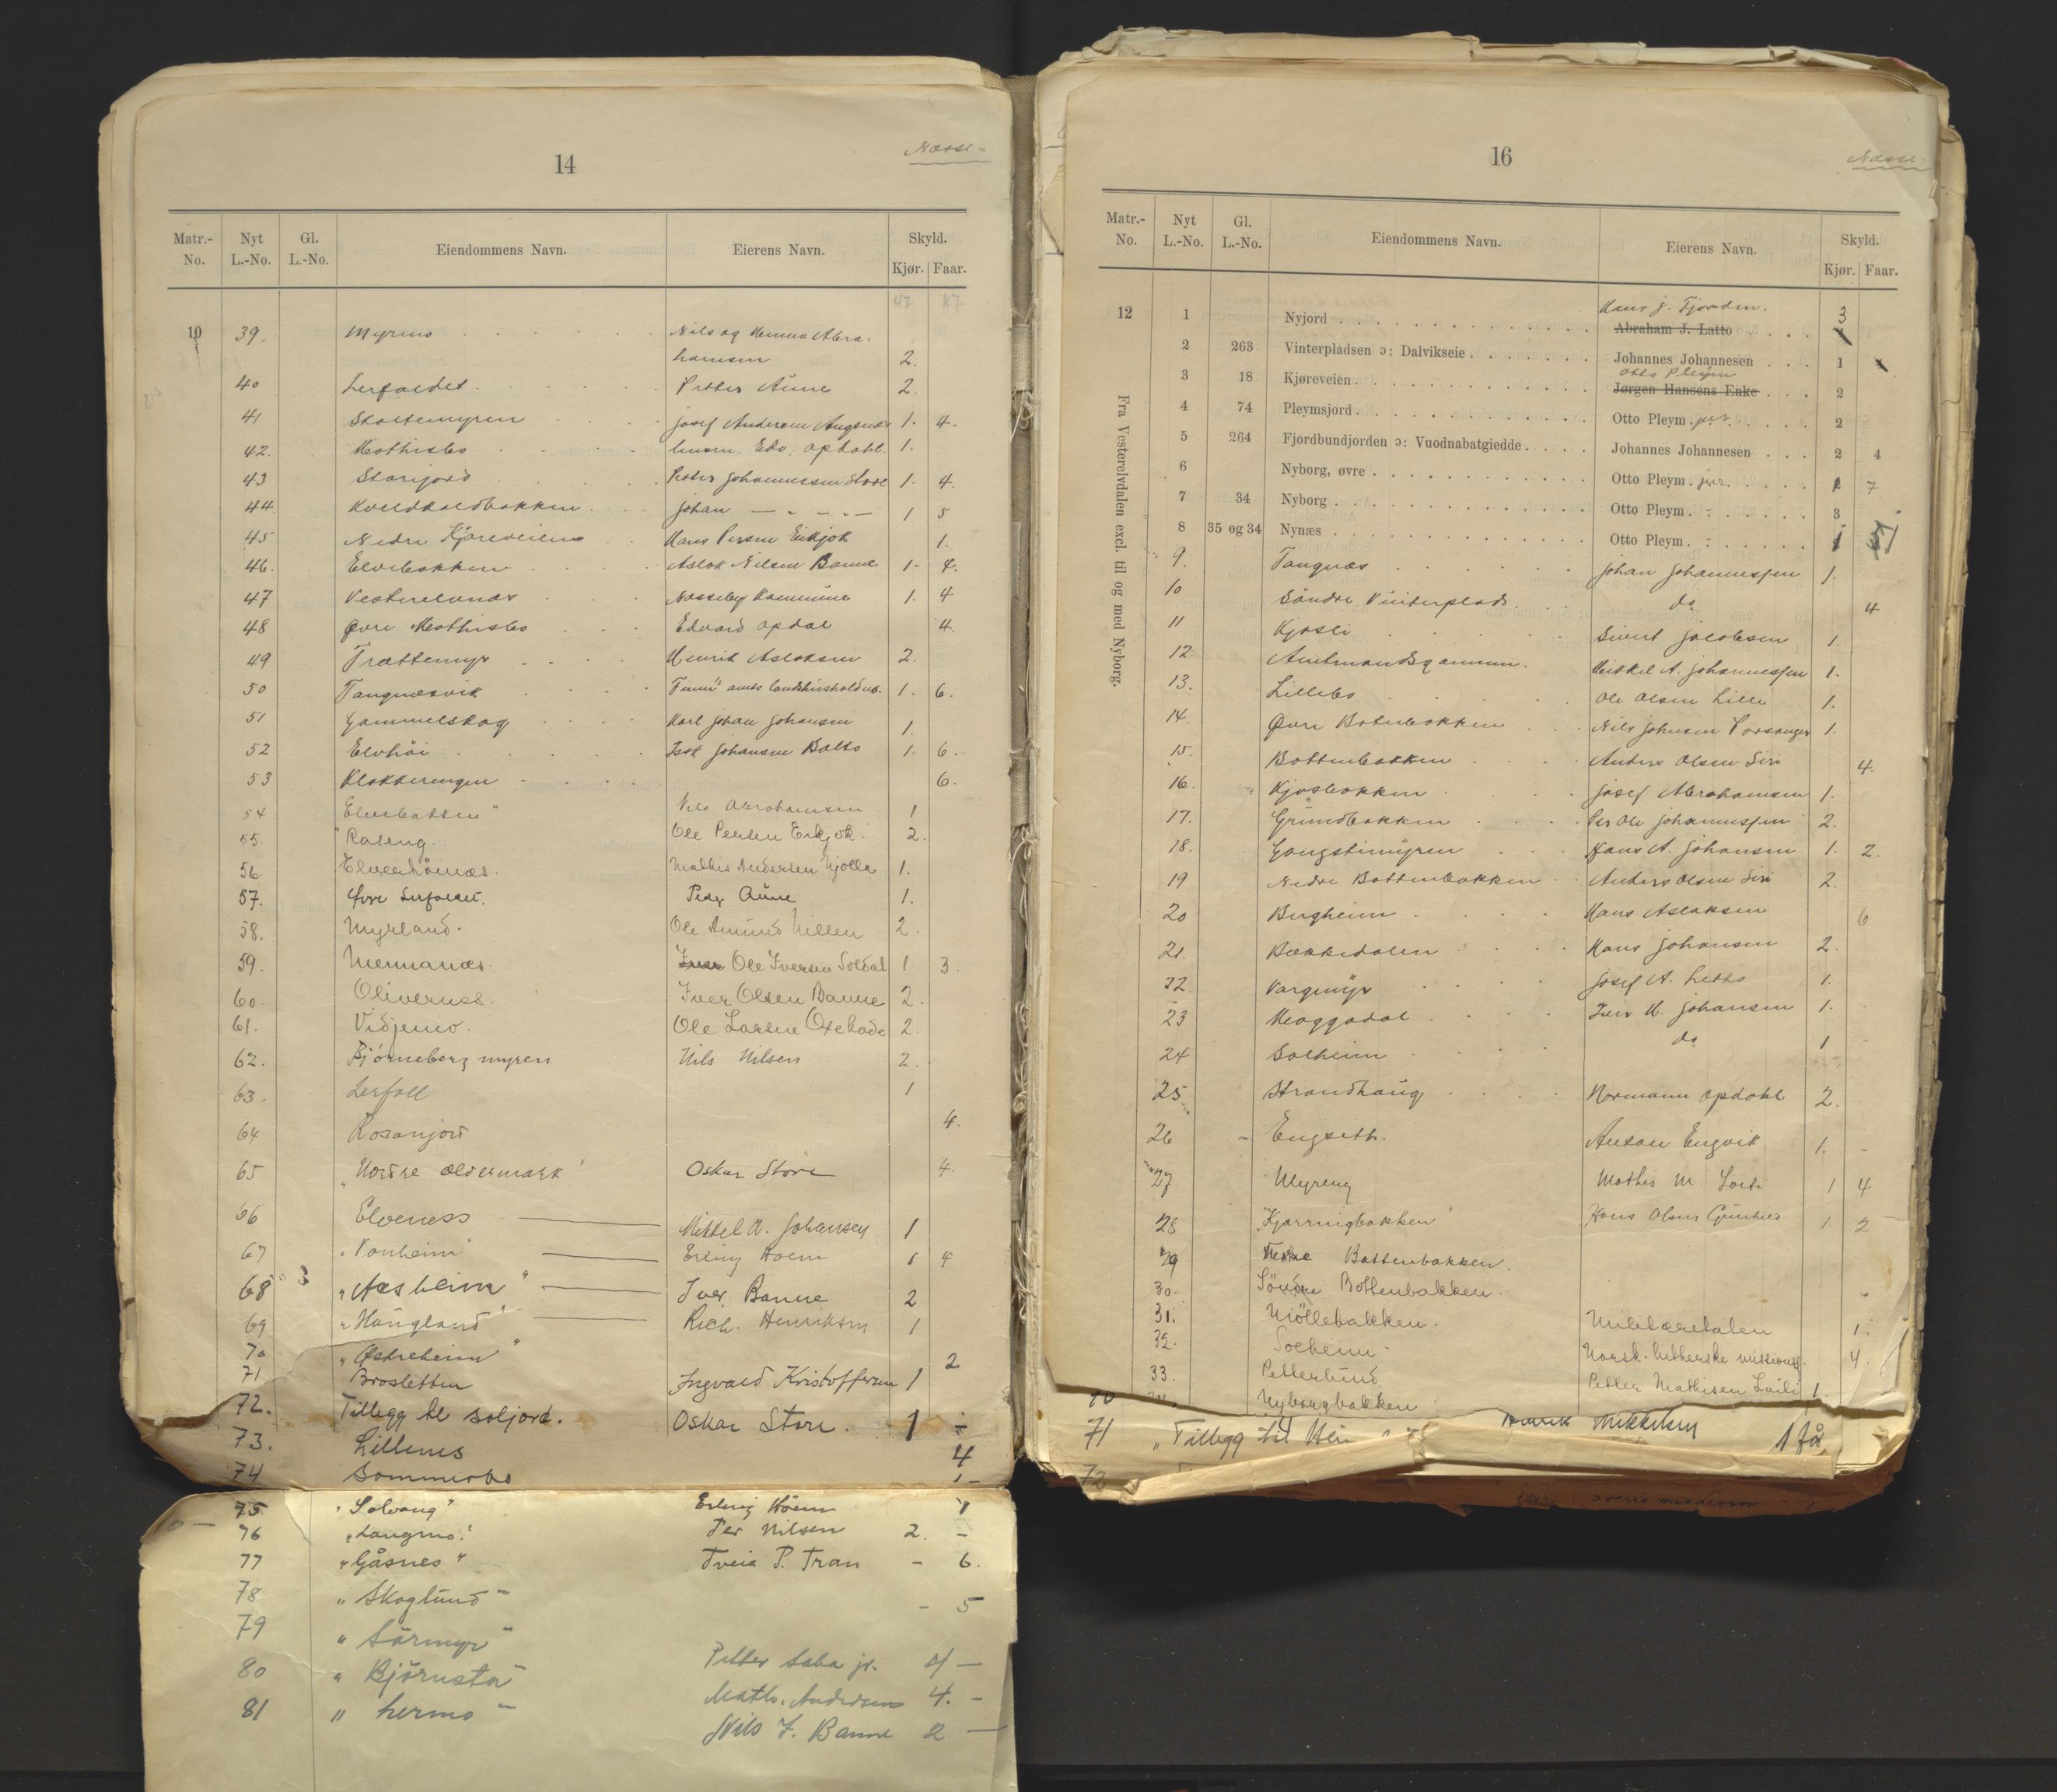 14
Nesse-
Matr.-No. Nyt L.-No. Gl. L.-No. Eiendommens Navn. Eierens Navn. Skyld. Kjør. Faar.
47 87
10 39. Myrmo Nils og Menna Abra-
hamsen 2.
40 Lerfaldet. Petter Aune 2.
41 Skaltemyren Josef Andersen 1. 4.
42. Mathisbo Edv. Opdahl. 1.
43 Storjord Peder Johannessen Store 1. 4.
44 Kveldkoldbakken Johan — „ — „ — 1 5
45 Nedre Kjøreveien Hans Persen Eikjok 1.
46. Elvebakken Aslak Nilsen Banne 1- 4.
47 Vesterelvnes Nesseby Kommune 1. 4
48 Øvre Mathisbo Edvard Opdal 4.
49 Trættemyr Henrik Aslaksen 2.
50 Tangnesvik Finm. amts landhusholdn. 1. 6.
51 Gammelskog Karl Johan Johansen 1.
52 Elvhøi Isak Johansen Balto 1. 6.
53 Klokkerengen 6.
54 Elvebakken" Nils Abrahamsen 1
55. "Raseng. Ole Persen Eikjok 2.
56. Elverhöinæs. Mathis Andersen Njolla 1.
57. Øvre Lerfaldet. Peder Aune 1.
58. Myrland. Ole Amund Nillen 2.
59. Mennanæs. Iver Ole Iversen Soldat 1 3.
60. Olivernes. Iver Olsen Banne 2.
61. Vidjemo. Ole Larsen Oxehode 2.
62. Björneberg myren Nils Nilsen 2.
63. Lerfall 1
64 Rosanjord 4.
65 „Nordre Oldermark" Oskar Store 4.
66 Elveness Mikkel A. Johansen 1
67 „Vonheim" Erling Hoem 1 4
68 „Aasheim" Iver Banne 2
69 „Haugland" Rich. Henriksen 1
70 „Østreheim" 2
71 Brosletten Ingvald Kristoffersen 1
72. Tillegg til Soljord. Oskar Store. 1 -
73. Lillenes 4
74 Sommerbo 1 -
75 „Solvang" Erling Höem 1
76 „Langmo." Per Nilsen 2. -
77 „Gåsnes" P. Tran - 6.
78 „Skoglund" - 5
79 „Sörmyr" Petter Saba jr. 4 —
80 „Björnstad" Math. Andersen 4. -
81 „hermo" Nils I. Banne 2 —
16
Nesse-
Matr.-No. Nyt L.-No. Gl. L.-No. Eiendommens Navn. Eierens Navn. Skyld. Kjør. Faar.
Fra Vesterelvdalen excl. til og med Nyborg.
Hans J. Fjorden. 3
12 1 Nyjord Abraham J. Latto
2 263 Vinterpladsen ɔ: Dalvikseie Johannes Johannesen 1
Otto Pleym
3 18 Kjøreveien Jørgen Hansens Enke 2
4 74 Pleymsjord Otto Pleym jun. 2
5 264 Fjordbundjorden ɔ: Vuodnabatgiedde Johannes Johannesen 2 4
6 Nyborg, øvre Otto Pleym jun. 7
7 34 Nyborg Otto Pleym 3
8 35 og 34 Nynæs Otto Pleym
9. Tangnæs Johan Johannessen 1.
10 Söndre Vinterplads do 4
11 Kjosli Sivert Jacobsen 1.
12 Amtmandsgammen. Mikkel A. Johannessen 1.
13. Lillebo Ole Olsen Lille 1.
14. Øvre Botnbakken Nils Johnsen Porsanger 1.
15. Bottenbakken Anders Olsen Siri 4.
16. Kjosbakken Josef Abrahamsen 1.
17. Grundbakken Per Ole Johannessen 2.
18. Gangstimyren Hans A. Johansen 1. 2.
19 Nedre Bottenbakken Anders Olsen Siri 2.
20 Bergheim Hans Aslaksen 6
21. Bækkedalen Hans Johansen 2.
22 Vargmyr Josef A. Letto 1.
23 Maggadal Iver H. Johansen 1.
24 Solheim do 1
25 Strandhaug Normann Opdahl 2.
26 Engseth. Anton Engvik 1. -
27 Myreng Mathis M. Laiti 1 4
28 „Kjærringbakken" Hans Olsen 1 2
29 Bottenbakken.
30. Söndre Bottenbakken.
31. Möllebakken. Militæretaten 1.
32. Solheim. Norsk-lutherske missions. 4.
33. Petterlund Petter Mathisen Laiti 1
Nyborgbakken
71 „Tillegg til Mikkelsen 1 får
72